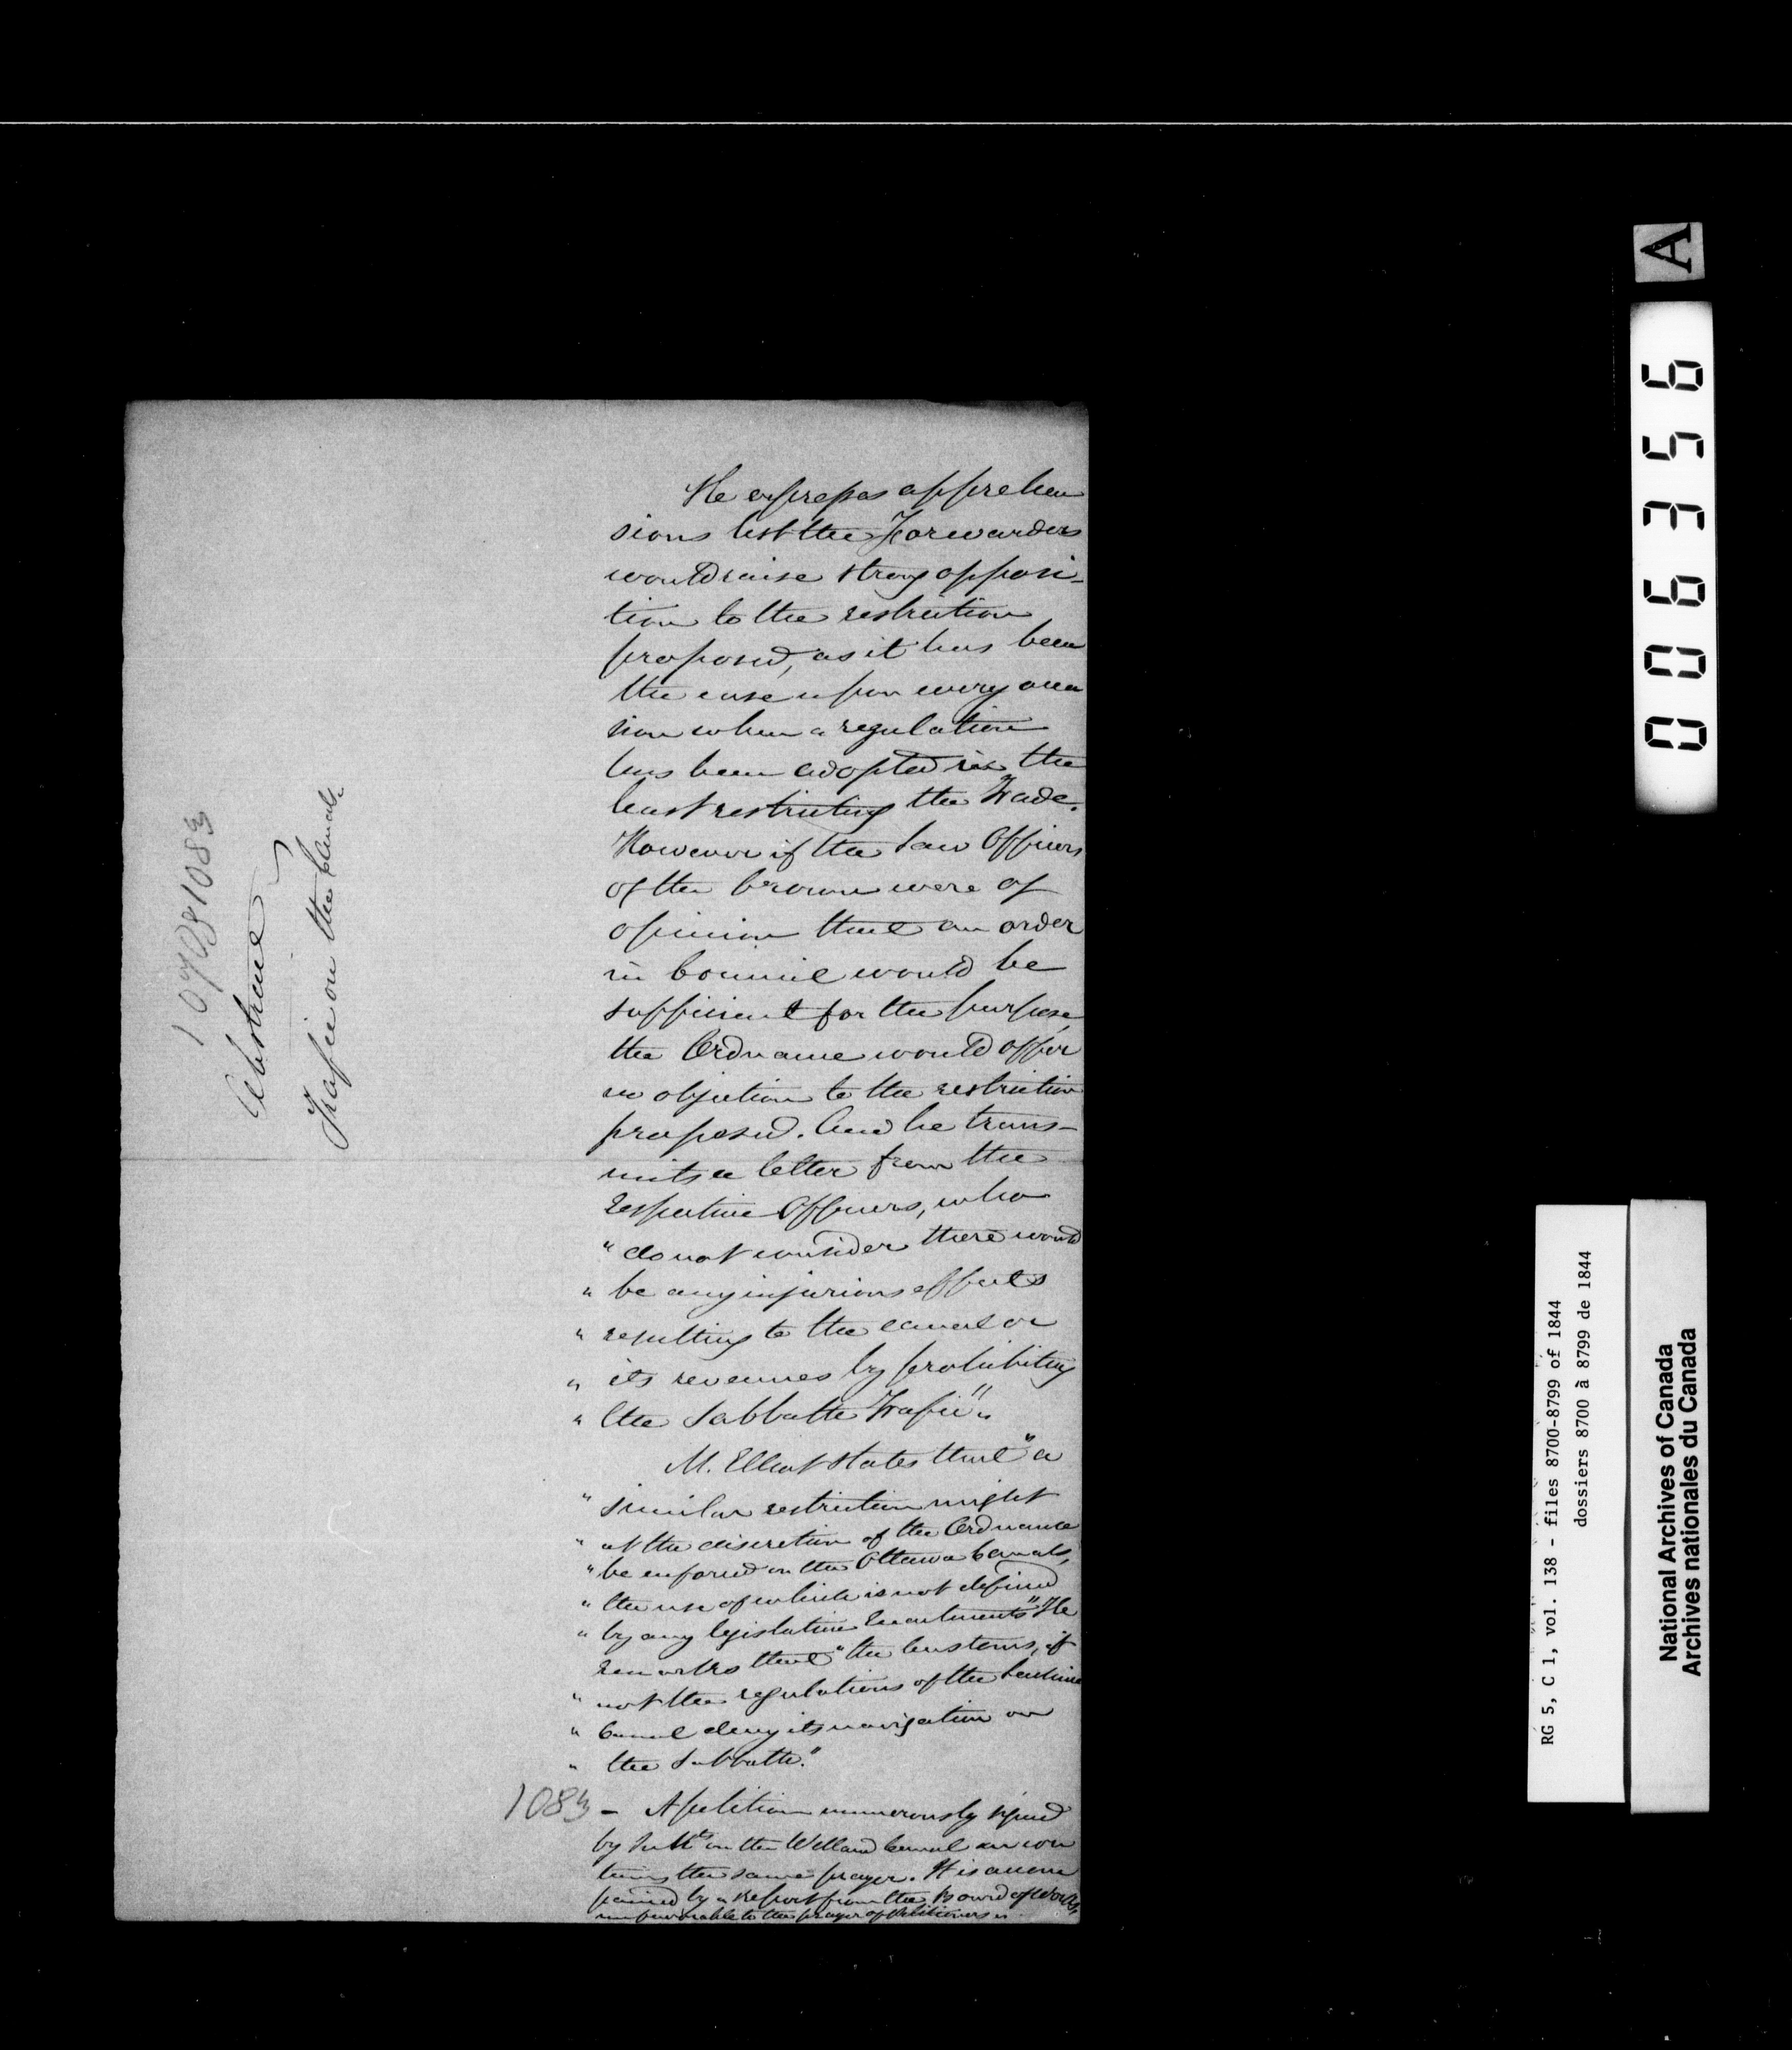 He expresses apprehen
sions lest the Forwarders
would raise strong opposi-
tion to the restriction
proposed, as it has been
the case upon every occa
sion when a regulation
has been adopted in the
least restricting the Trade.
However if the Law Officers
of the Crown were of
opinion that an order
in Council would be
sufficient for the purpose,
the Ordnance would offer
no objection to the restriction
proposed. And he trans-
mits a letter from the
respective Officers, who
"do not consider there would
" be any injurious effects
" resulting to the canal or
" its revenues by prohibiting
" the Sabbath Trafic".
M. Elliot states that "a
" similar restriction might
" at the discretion of the Ordnance
" be enforced on the Ottawa Canals,
" the use of which is not defined
" by any legislative Enactments" He
remarks that "the customs, if
" not the regulations of the Lachine
" Canal deny its navigation on
" the Sabbath."
1083 - A petition numerously signed
by on the Welland Canal con
taining the same prayer. It is accom
panied by a Report from the Board of Works,
unfavorable to the prayer of Petitioners.
1083
Abstract
Trafic on the Canals.
A
006356
RG 5, C 1, vol. 138 - files 8700-8799 of 1844
dossiers 8700 à 8799 de 1844
National Archives of Canada
Archives nationales du Canada